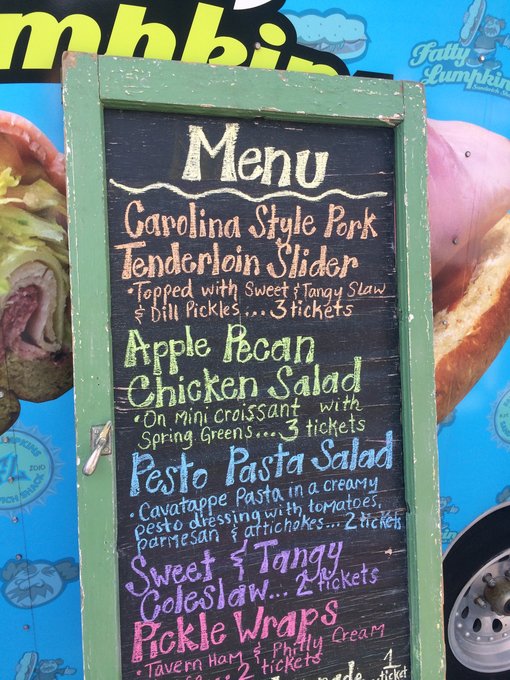 mpkin
Fatty
Lumpkins
Sandwich
Menu
Carolina Style Pork
Tenderloin Slider
•Topped with Sweet & Tangy Slaw
& Dill Pickles... 3 tickets
Apple Pecan
Chicken Salad
•On Mini Croissant with
Spring Greens... 3 tickets
Pesto Pasta Salad
•Cavatappe Pasta in a creamy
pesto dressing with tomatoes,
parmesan & artichokes... 2 tickets
Sweet & Tangy
Coleslaw... 2 tickets
Pickle Wraps
•Tavern Ham & Philly Cream
2 tickets
1
ticket
2010